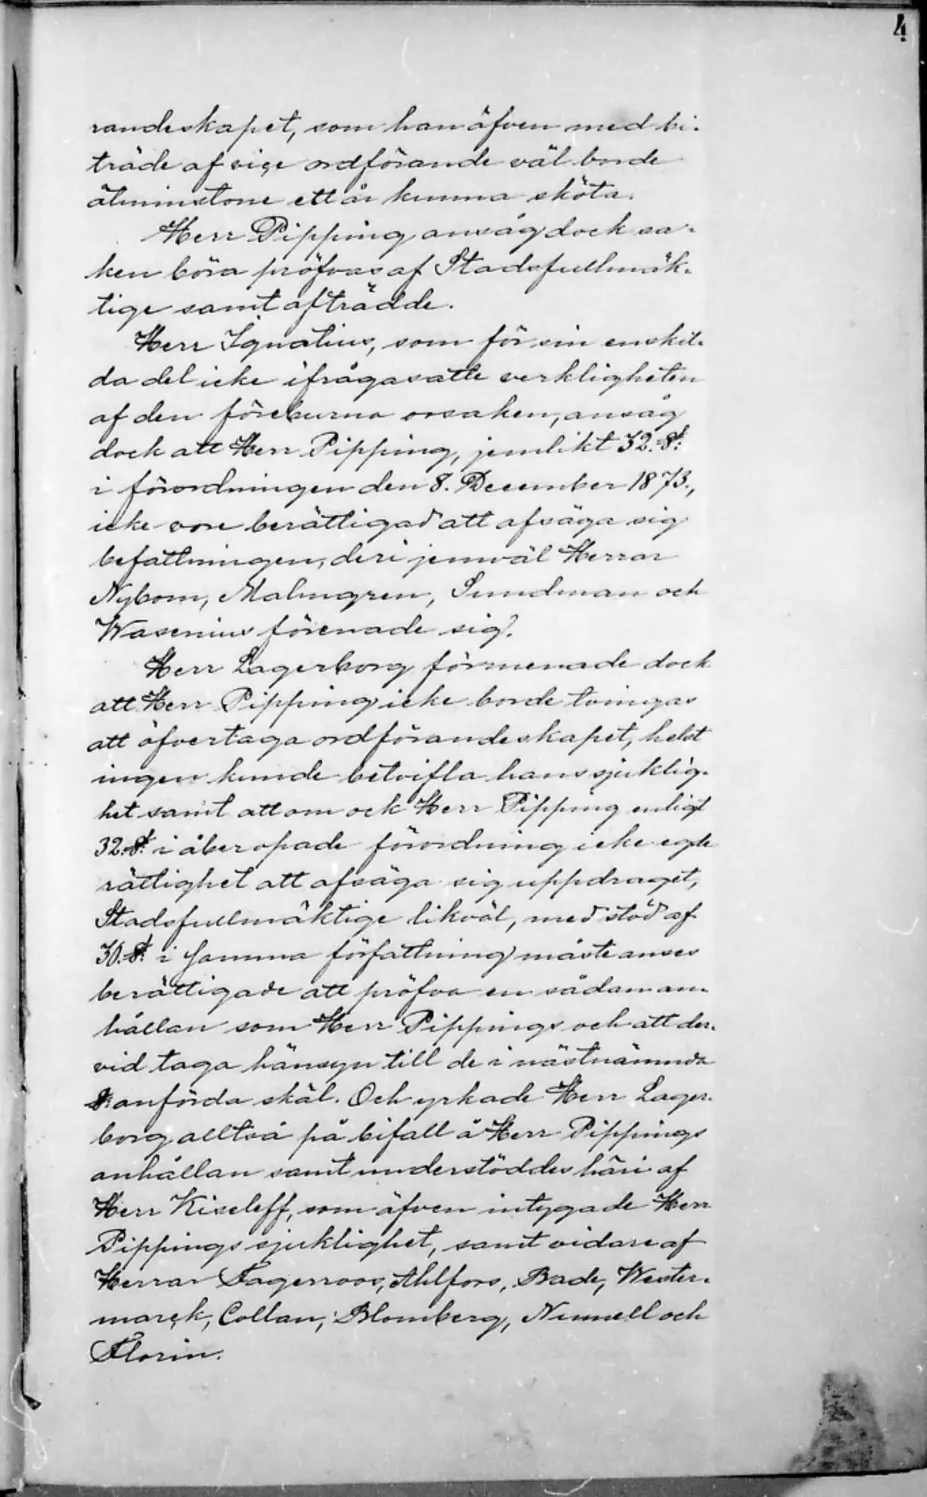 4
randeskapet, som han äfven med bi-
träde af vice ordförande väl borde
åtminstone ett år kunna sköta.
Herr Pipping ansåg dock sa-
ken böra pröfvas af Stadsfullmäk-
tige samt afträdde.
Herr Ignatius, som för sin enskil-
da del icke ifrågasatte verkligheten
af den föreburna orsaken, ansåg
dock att Herr Pipping, jemlikt 32. §:
i förordningen den 8. December 1873.,
icke vore berättigad att afsäga sig
befattningen, deri jemväl Herrar
Nybom, Malmgren, Sundman och
Wasenius förenade sig.
Herr Lagerborg förmenade dock
att Herr Pipping icke borde tvingas
att öfvertaga ordförandeskapet, helst
ingen kunde betvifla hans sjuklig-
het samt att om ock Herr Pipping enligt
32. §: i åberopade förordning icke egde
rättighet att afsäga sig uppdraget,
Stadsfullmäktige likväl, med stöd af
30. §: i samma författning måste anses
berättigade att pröfva en sådan an-
hållan som Herr Pippings och att der-
vid taga hänsyn till de i nästnämnda
§: anförda skäl. Och yrkade Herr Lager-
borg alltså på bifall å Herr Pippings
anhållan samt understöddes häri af
Herr Kiseleff, som äfven intygade Herr
Pippings sjuklighet, samt vidare af
Herrar Fagerroos, Ahlfors, Bade, Wester-
marck, Collan, Blomberg, Nummell och
Florin.